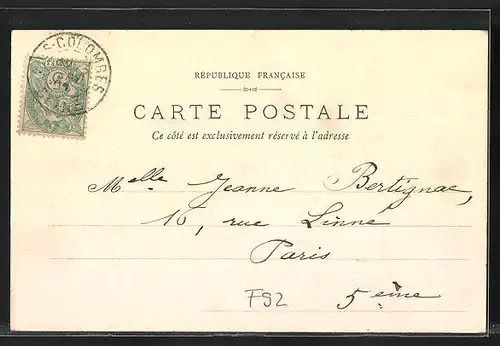 S-COLOMBES
RÉPUBLIQUE FRANÇAISE
CARTE POSTALE
Ce côté est exclusivement réservé à l'adresse
Melle Jeanne Bertignac,
16, rue Linné
Paris
F92
5ème